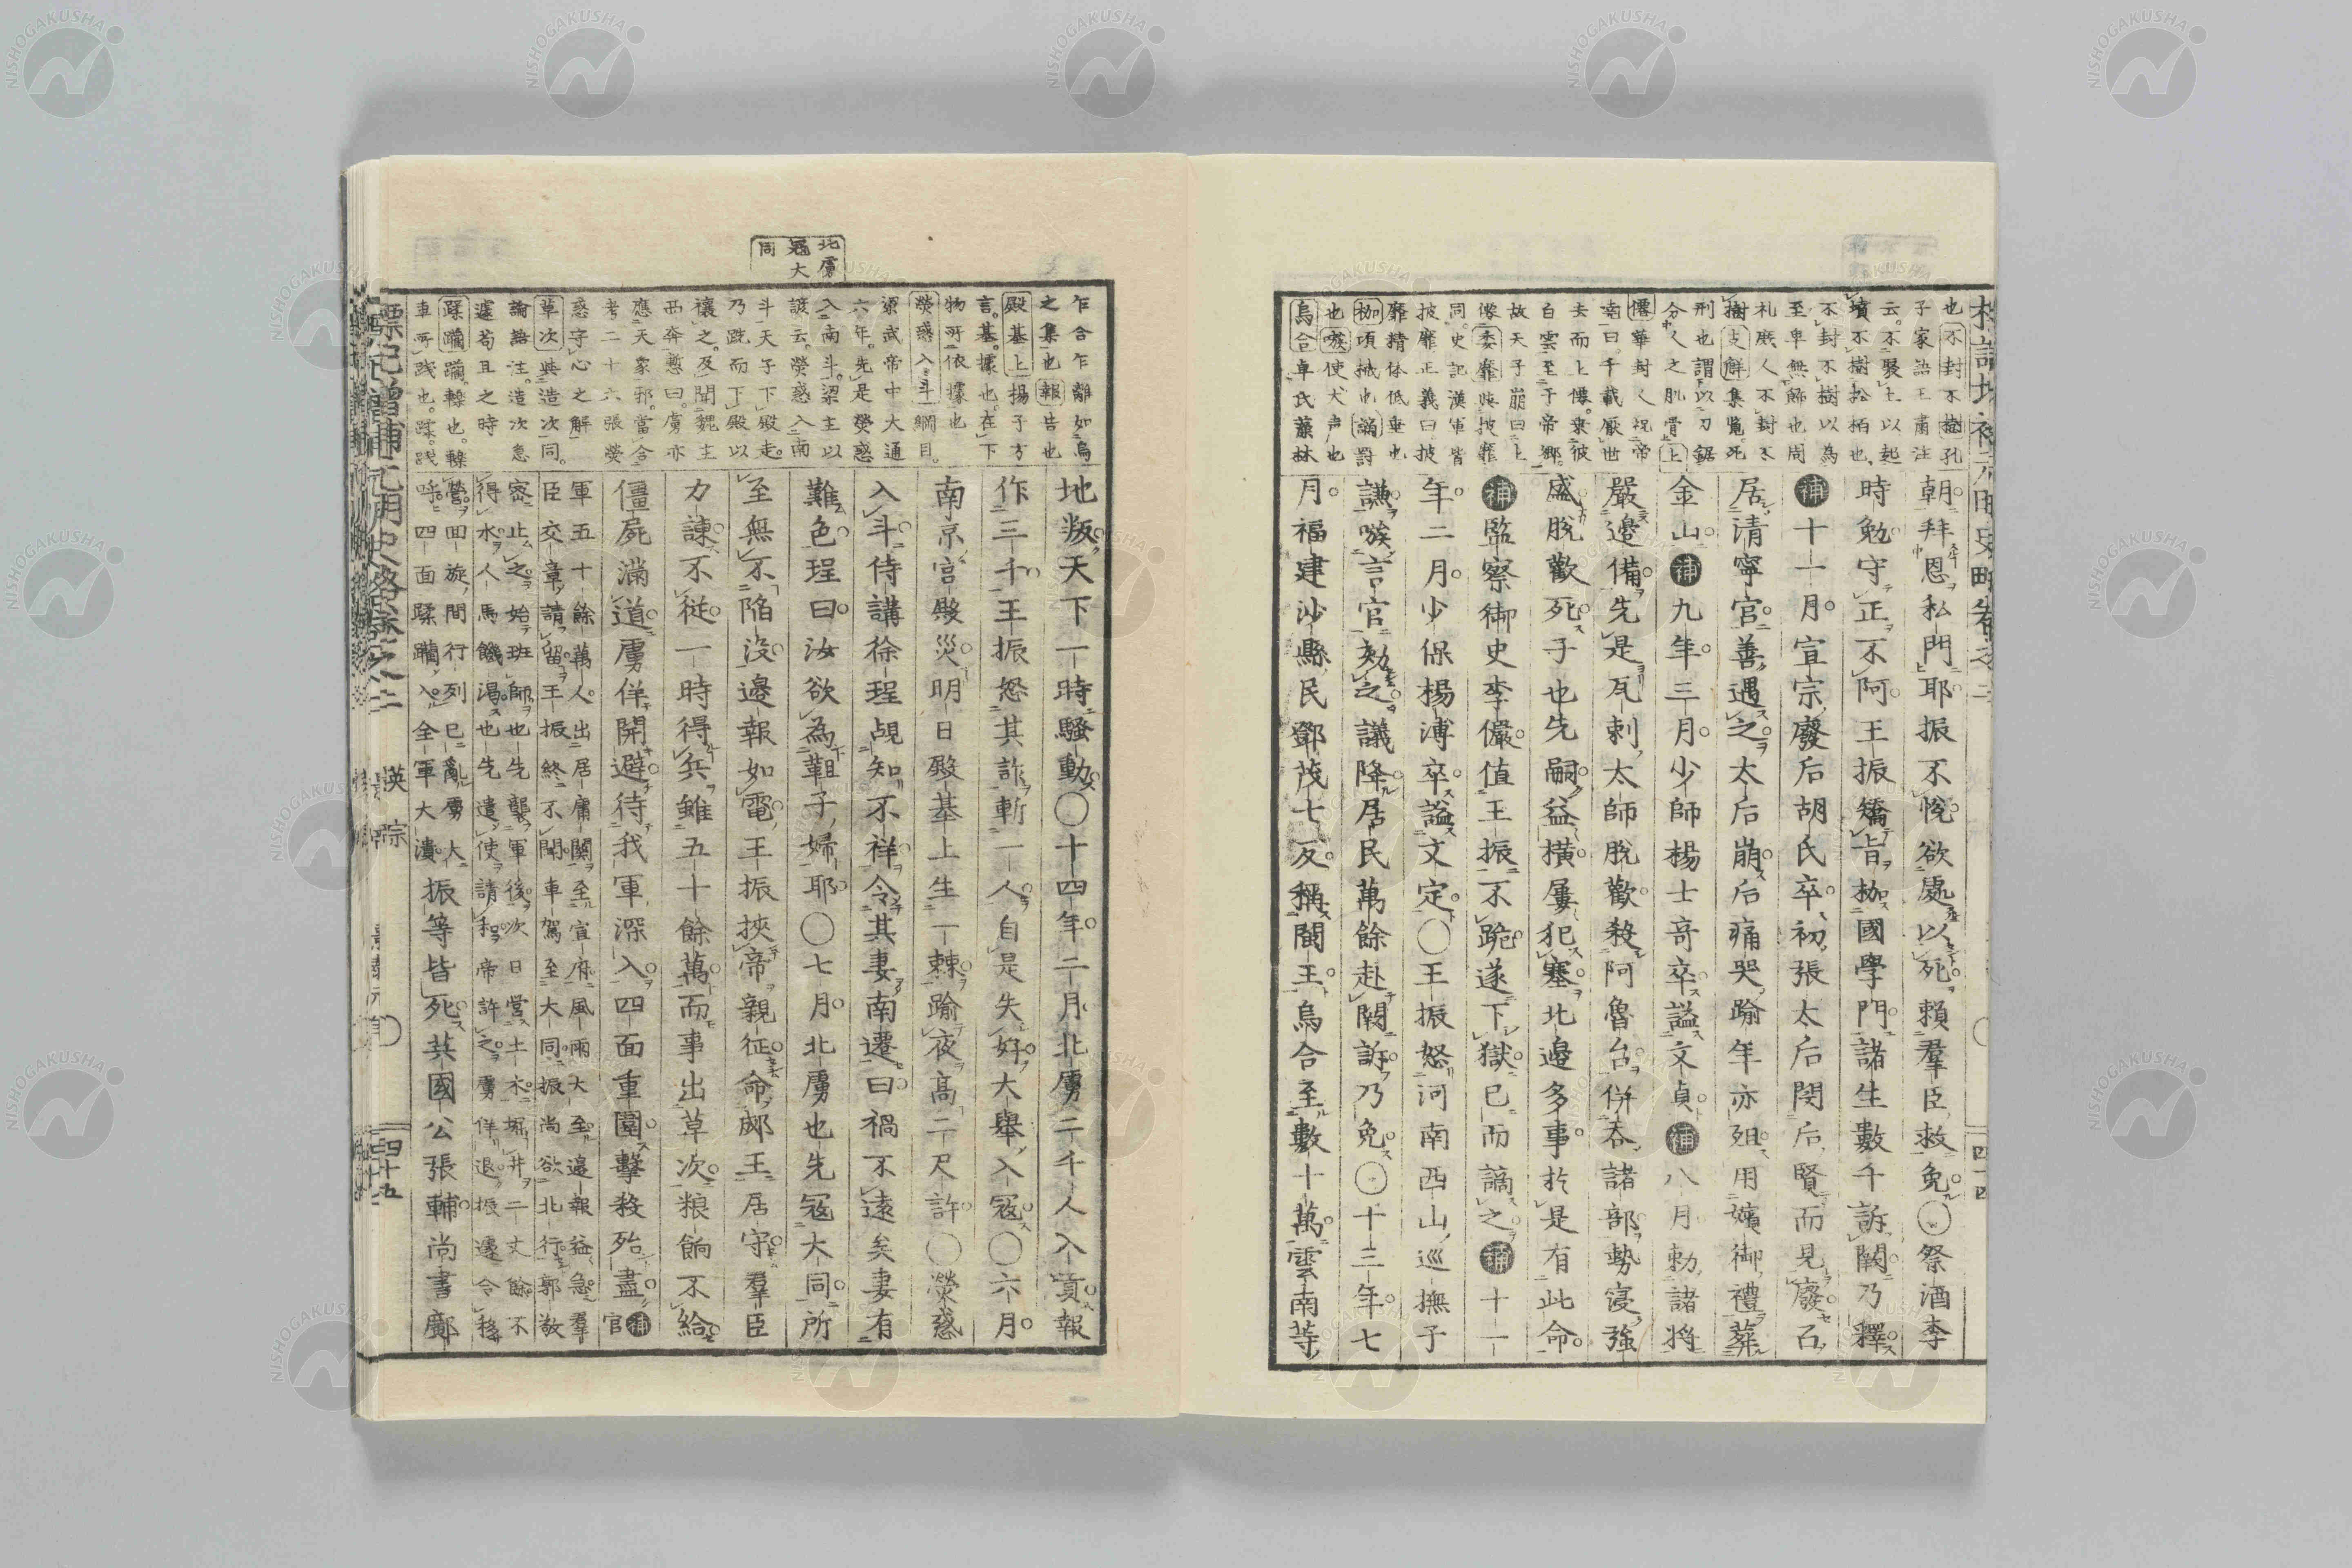 標記增補元明史畧卷之二
四十四
也不封不樹孔
子家語王肅注
云不聚土以起
墳不樹松柏也
不封不樹以為
至卑無飾也周
礼庶人不封不
樹支解集覧死
刑也謂以刀鋸
分人之肌骨上
僊華封人祝帝
堯曰千載厭世
去而上僊乗彼
白雲至于帝鄉
故天子崩曰上
僊委靡與披靡
同史記漢軍皆
披靡正義曰披
靡精体低垂也
枷項械也謫罰
也嗾使犬声也
烏合草民叢林
朝拜恩私門耶振不悅欲處以死賴羣臣救免〇祭酒李
時勉守正不阿王振矯旨枷國學門諸生數千訴闕乃釋
補十一月宣宗廢后胡氏卒初張太后閔后賢而見廢召
居清寧宮善遇之太后崩后痛哭踰年亦殂用嬪御禮葬
金山補九年三月少師楊士奇卒謚文貞補八月勅諸將
嚴邊備先是瓦剌太師脫歡殺阿魯台併吞諸部勢寖強
盛脫歡死子也先嗣益橫屢犯塞北邊多事於是有此命
補監察御史李儼值王振不跪遂下獄已而謫之補十一
年二月少保楊溥卒謚文定〇王振怒河南西山巡撫于
謙嗾言官劾之議降居民萬餘赴闕訴乃免〇十三年七
月福建沙縣民鄧茂七反稱閩王烏合至數十萬雲南等
北虜
寇大
同
乍合乍離如烏
之集也報告也
殿基上揚子方
言基據也在下
物所依據也
熒惑入斗綱目
梁武帝中大通
六年先是熒惑
入南斗梁主以
諺云熒惑入南
斗天子下殿走
乃跣而下殿以
禳之及聞魏主
西奔慙曰虜亦
應天象邪當合
考二十六張熒
惑守心之解
草次與造次同
論語注造次急
遽苟且之時
蹂躪躪轢也轢
車所踐也蹂踐
地叛天下一時騷動〇十四年二月北虜二千人入貢報
作三千王振怒其詐斬一人自是失好大舉入寇〇六月
南京宮殿災明日殿基上生一棘踰夜高二尺許〇熒惑
入斗侍講徐珵覘知不祥令其妻南遷曰禍不遠矣妻有
難色珵曰汝欲為韃子婦耶〇七月北虜也先寇大同所
至無不陷没邊報如電王振挾帝親征命郕王居守羣臣
力諫不從一時得兵雖五十餘萬而事出草次粮餉不給
僵屍滿道虜佯開避待我軍深入四面重圍擊殺殆盡補官
軍五十餘萬人出居庸關至宣府風雨大至邊報益急羣
臣交章請留王振終不聞車駕至大同振尚欲北行郭敬
密止之始班師也先襲軍後次日營土木堀井二丈餘不
得水人馬饑渴也先遣使請和帝許之虜佯退振遽令移
營回旋間行列已亂虜大
呼四面蹂躪入全軍大潰振等皆死英國公張輔尚書鄺
標記增補元明史畧卷之二
英宗
四十五